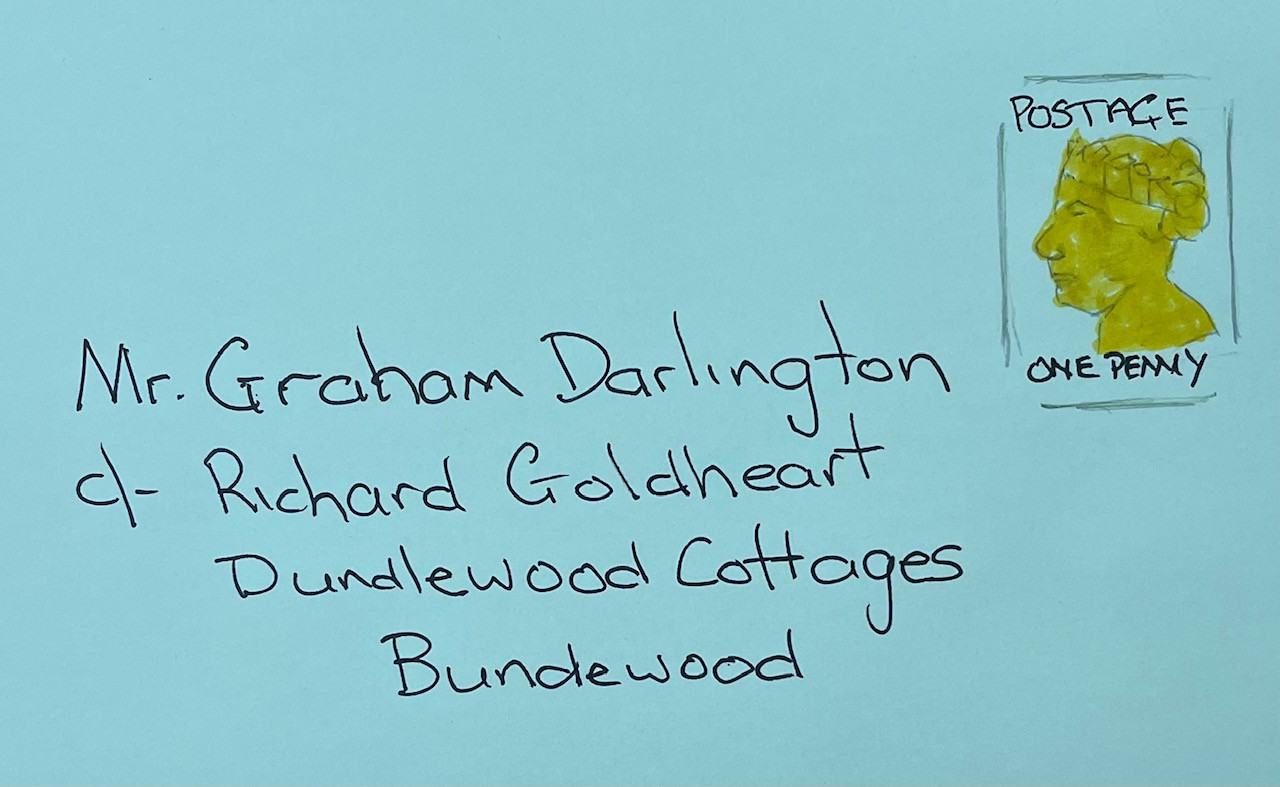 POSTAGE
ONE PENNY
Mr. Graham Darlington
c/- Richard Goldheart
Dundlewood Cottages
Bundewood